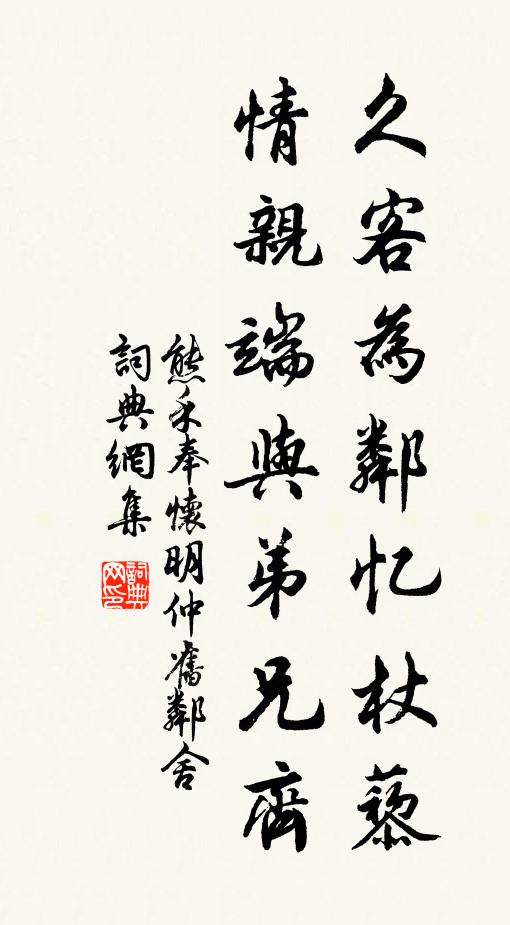 久客為鄰忆杖藜
情親端與弟兄齊
熊禾奉懷明仲舊鄰舍
詞典網集
詞典网印